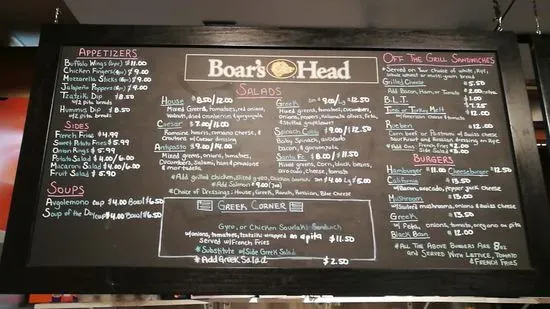 Boar's Head
APPETIZERS
BUFFALO WINGS (8pc) $11.00
CHICKEN FINGERS $9.00
MOZZARELLA STICKS $9.00
JALAPENO POPPERS $9.00
TZATZIKI DIP $8.50
w/2 pita breads
HUMMUS DIP $8.50
w/2 pita breads
SIDES
FRENCH FRIES $4.99
SWEET POTATO FRIES $5.99
ONION RINGS $5.99
POTATO SALAD $4.00/6.00
MACARONI SALAD $4.00/6.00
FRUIT SALAD $5.90
SOUPS
AVGOLEMONO CUP $4.00 BOWL $6.50
SOUP OF THE DAY CUP $4.00 BOWL $6.50
SALADS
HOUSE $8.50/12.00
Mixed Greens, tomatoes, red onions,
walnuts, dried cranberries, & gorgonzola
CAESAR $7.00/6.00
Romaine hearts, romano cheese, &
croutons w/Caesar dressing
ANTIPASTO $9.00/14.00
Mixed greens, onions, tomatoes,
cucumbers, Salami, ham & provolone
& mor tadella
GREEK $9.00 12.50
Mixed greens, tomatoes, cucumbers,
onions, peppers, Kalamata olives, Feta,
& stuffed grapeleaf
SPINACH COBB $9.00/12.50
Baby Spinach, avocado
bacon, & gorgonzola
SANTA FE $8.00/11.50
Mixed greens, corn, black beans,
avocado, cheese, tomato
*Add grilled chicken, sliced gyro, chicken
*Add Salmon $9.00
*Choice of Dressings: House, Greek, Ranch, Russian, Blue Cheese
GREEK CORNER
GYRO, OR CHICKEN SOUVLAKI SANDWICH
w/onions, tomatoes, tzatziki wrapped in a pita $11.50
Served w/French Fries
*Substitute w/Side Greek Salad
*Add Greek Salad $2.50
OFF THE GRILL SANDWICHES
*Served on your choice of white, rye,
whole wheat or multi grain bread
GRILLED CHEESE $5.50
Add Bacon, Ham, or Tomato $2.00
B.L.T. $7.25
TUNA or TURKEY MELT $12.00
w/American cheese & tomato
REUBEN $12.00
Corn beef or Pastrami w/Swiss cheese
Sauerkraut and Russian dressing on Rye
*Add ons: French Fries $2.00
Side Salad $3.00
BURGERS
HAMBURGER $11.00 CHEESEBURGER $12.50
CALIFORNIA $13.50
w/Bacon, avocado, pepper jack cheese
MUSHROOM $13.00
w/Sauteed mushrooms, onions & swiss cheese
GREEK $13.50
w/Feta, onions, tomato, oregano on pita
BLACK BEAN $12.00
*ALL THE ABOVE BURGERS ARE 8oz
AND SERVED WITH LETTUCE, TOMATO
& FRENCH FRIES